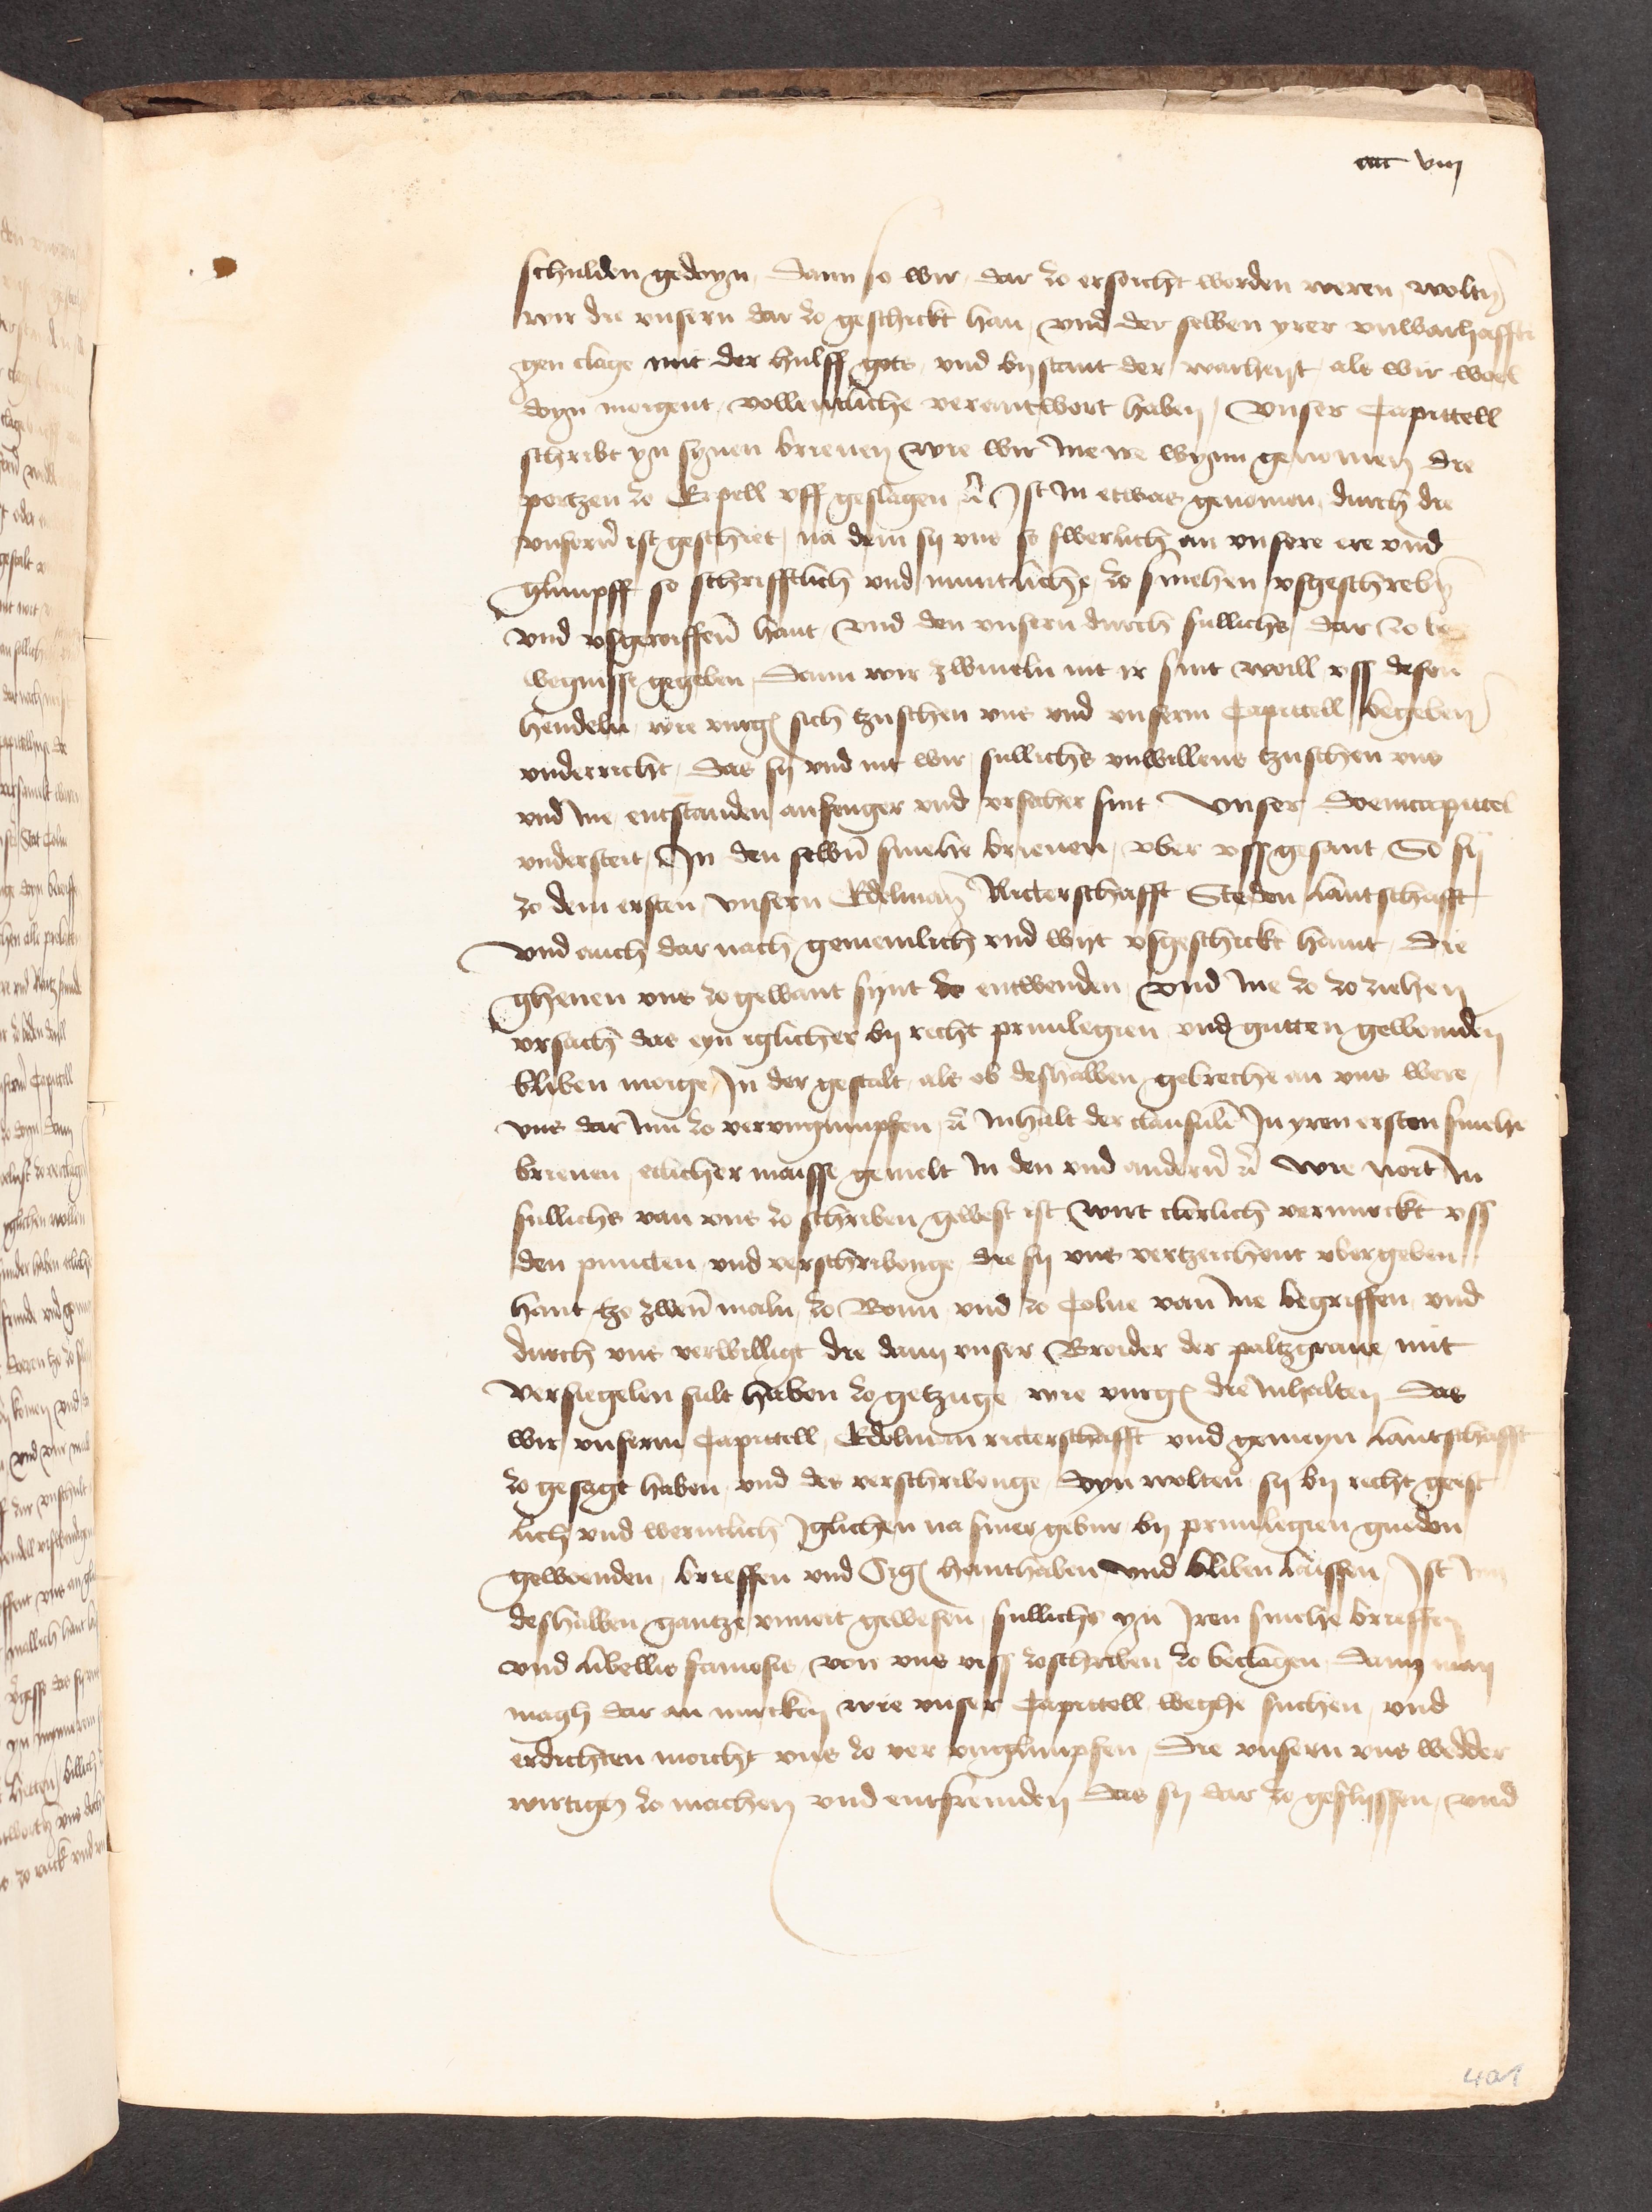 viij
schulden gedoyn, Dann so wir dar zo ersoicht worden weren, wolten
wir die vnsern dar zo geschickt han, vnd der selben yrer vnwarhaffti
gen clage mit der hulff gots, vnd bystant der warheyt, als wir woel
doyn moigent, vollentliche verantwort haben, Vnser Capittell
schribt yn synen brieuen wie wir Ine ire wynn genomen die
portzen zo Erpell vff geslagen etc Ist In etwas genomen durch die
vnsern ist geschiet, na dem sy vns so swerlich an vnsere ere vnd
glimpff so schrifftlich vnd muntliche, zo smehen vsgeschreben
vnd vsgeroiffen hant, vnd den vnsern durch sulliche, dar zo be
wegnisse gegeben, Dann wir zwiueln nit ir sint woill vss desen
hendeln, wie vurgeschreven sich tzuschen vns vnd vnserm Capittell begeben
vnderricht, das sy vnd nit wir, sullichs vnwillens tzuschen vns
vnd Ine entstanden anfenger vnd vrsacher sint Vnser Doemcapittel
vndersteit, In den selben smehe brieuen, vber vss gesant, So sy
zo dem ersten, vnsern Edelman Ritterschafft Steden lantschafft
vnd auch dar nach gemeinlich vnd wijt vsgeschickt haint, Die
ghenen vns zogewant synt zo entwenden, vnd Ine zo zo ziehen
vrsach das eyn iglicher by recht priuilegien vnd gutten gewonden
bliben moige, In der gestalt, als ob deshalben gebreche an vns were
vns dar Inn zo verunglimpfen, etc Inhalt der clausulen In yren ersten smehe
brieuen, etlicher maisse gemelt In den vnd andern etc Wie noet In
sullichs van vns zo schriben gewest ist wirt clerlich vermirckt vss
den puncten, vnd verschribonge, die sy vns vertzeichent vbergeben
hant, tzo zwen maln, zo Bonn vnd zo Colne van Ine begriffen, vnd
durch vns verwilligt die dann vnser Broider der paltzgraue, mit
versiegelen sult haben zo getzuge wie vurgeschreven die Inhalten, Das
wir vnserm Capittell, Edelman ritterschafft vnd gemeyn lantschafft
zo gesagt haben, vnd des verschribonge, Doyn wolten sy by recht geist
lich vnd werntlich Iglichen na siner gebur, by priuilegien guden
gewoenden, brieffen vnd Sigel hanthaben, vnd bliben laissen, Ist
deshalben gantze vnnoit gewesen, sullichs yn Iren smehe brieffen
vnd libellis famosis, von vns vss zoschriben, zo beclagen, Dann man
magh dar an mircken wie vnser Capittell weghe suchen, vnd
erdichten moicht vns zo ver vnglimpfen, Die vnsern vns wedder
wirtigen zo machen vnd entfremden Das sy dar zo geflyssen, vnd
401